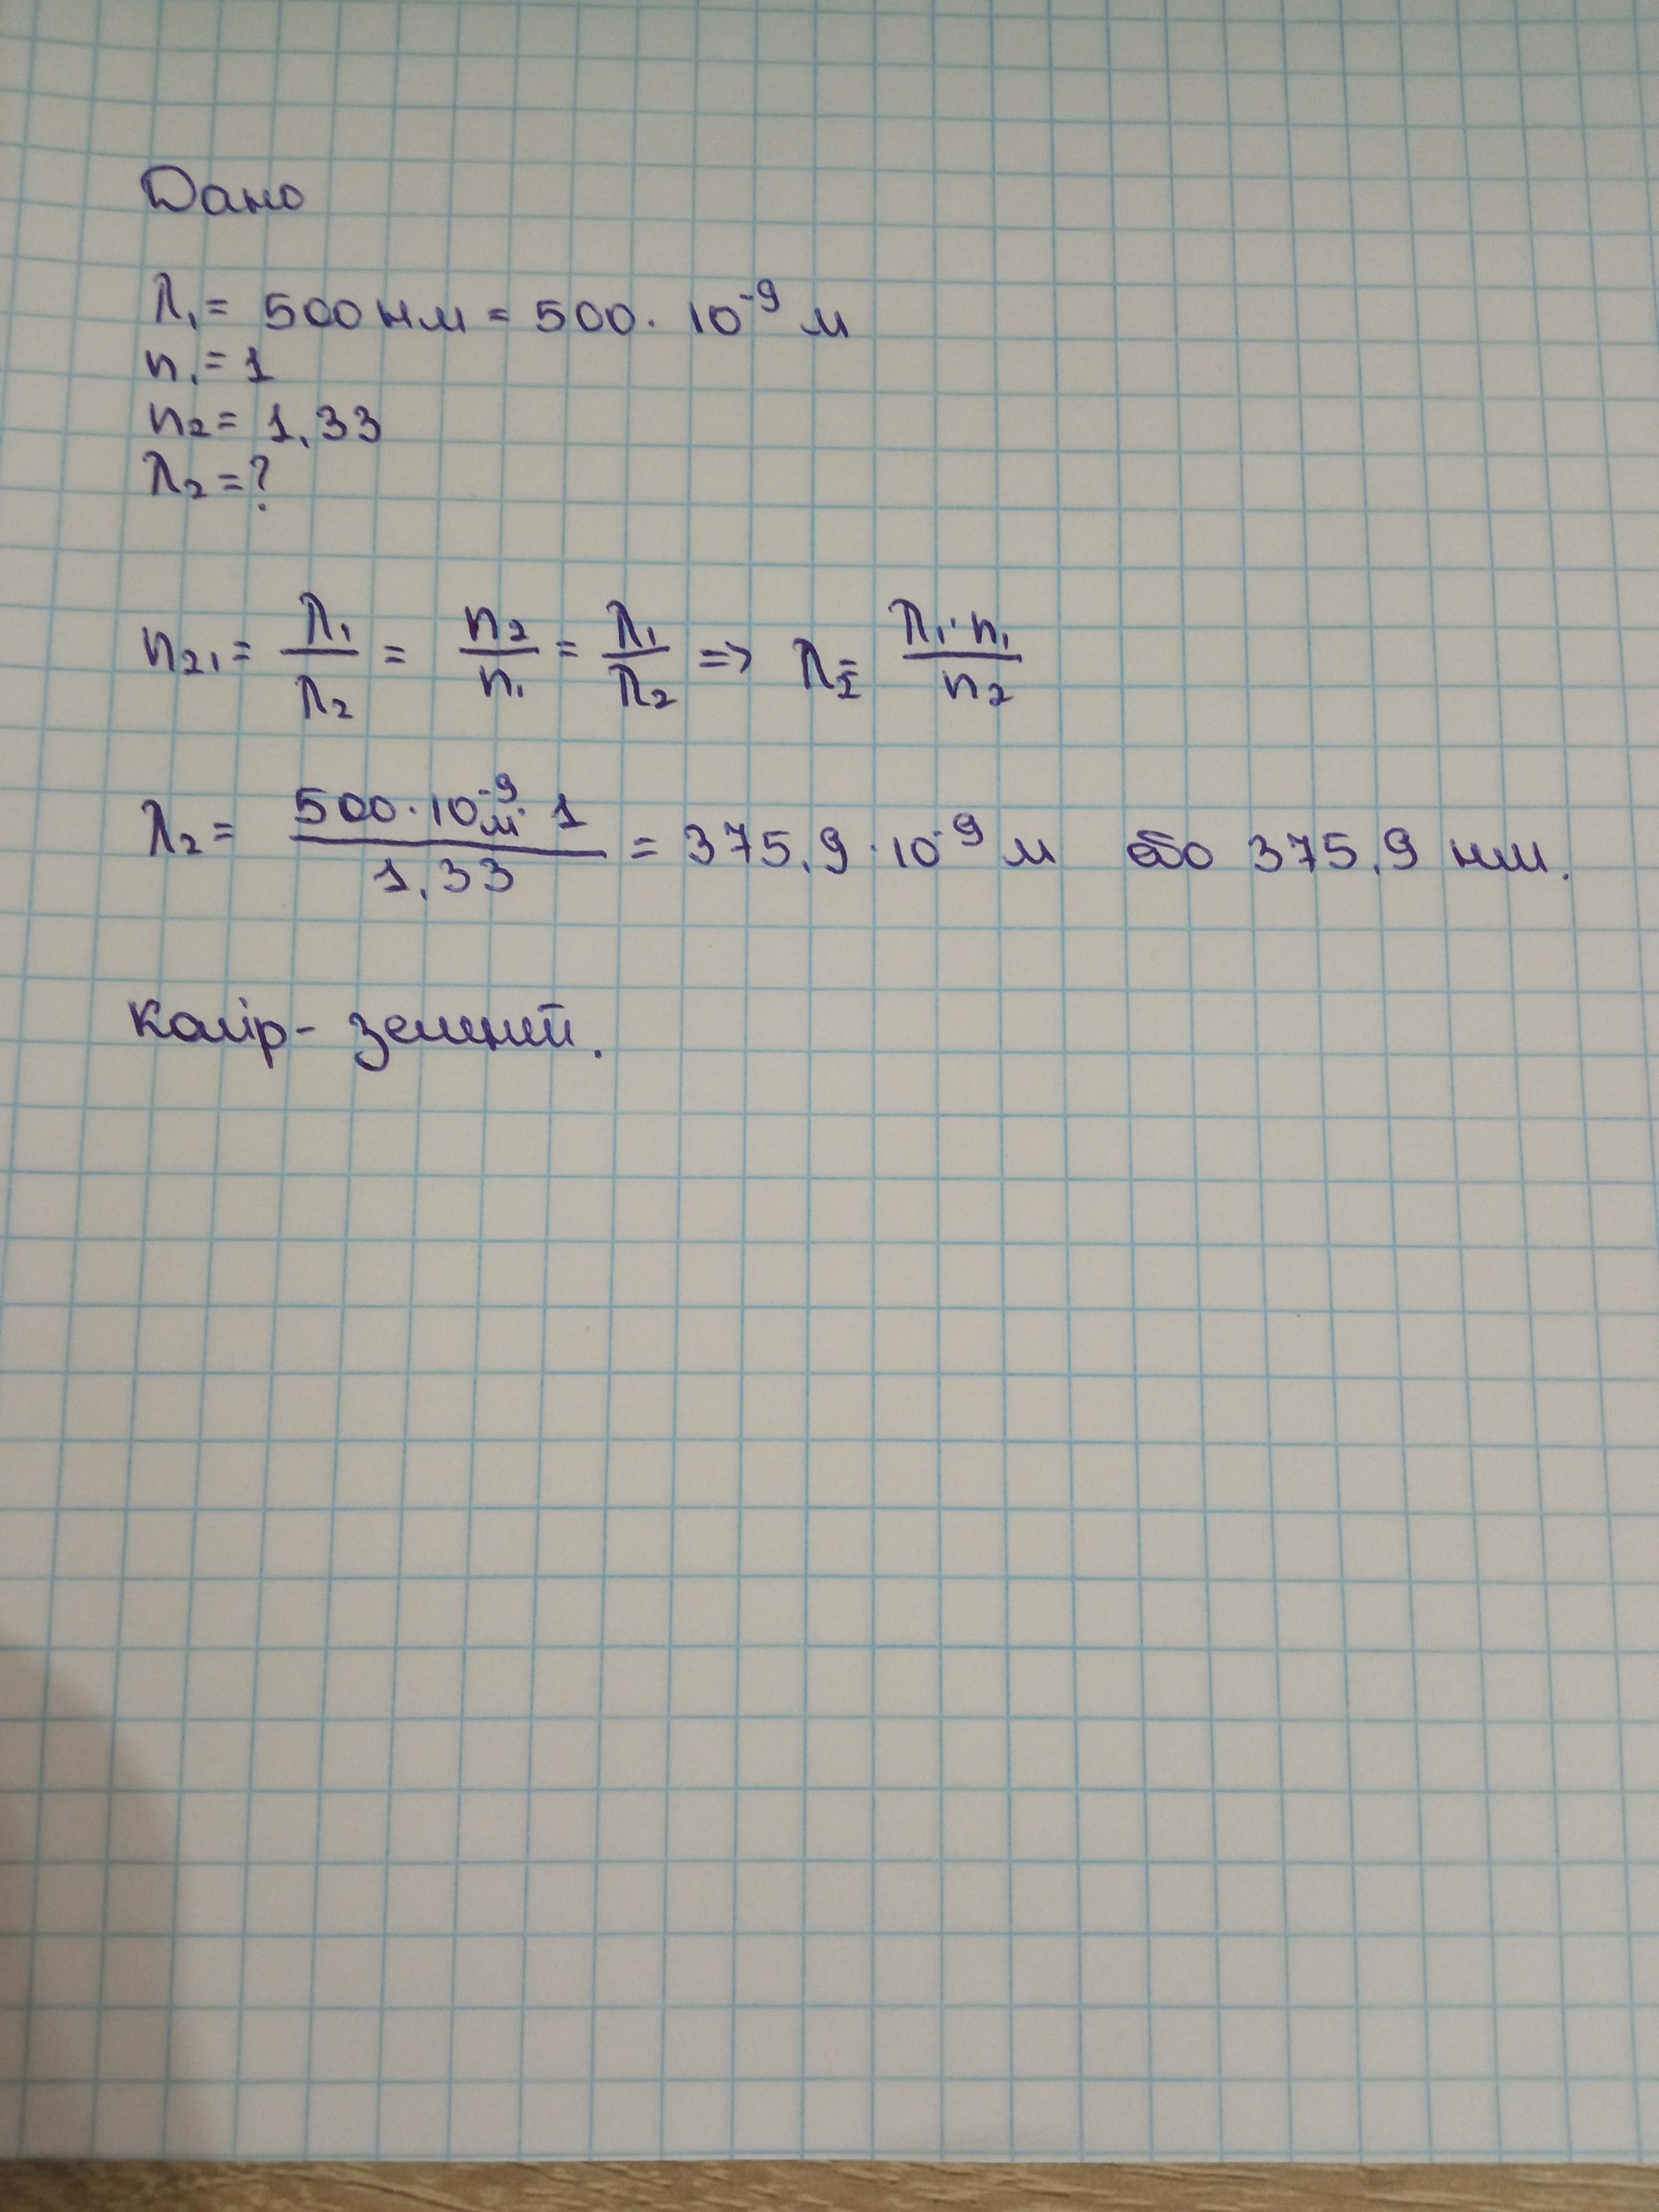 Дано
λ₁ = 500 нм = 500 · 10⁻⁹ м
n₁ = 1
n₂ = 1,33
λ₂ = ?
n₂₁ = λ₁/λ₂ = n₂/n₁ = λ₁/λ₂ => λ₂ = λ₁·n₁/n₂
λ₂ = 500·10⁻⁹ м · 1/1,33 = 375,9 · 10⁻⁹ м або 375,9 нм.
колір - зелений.